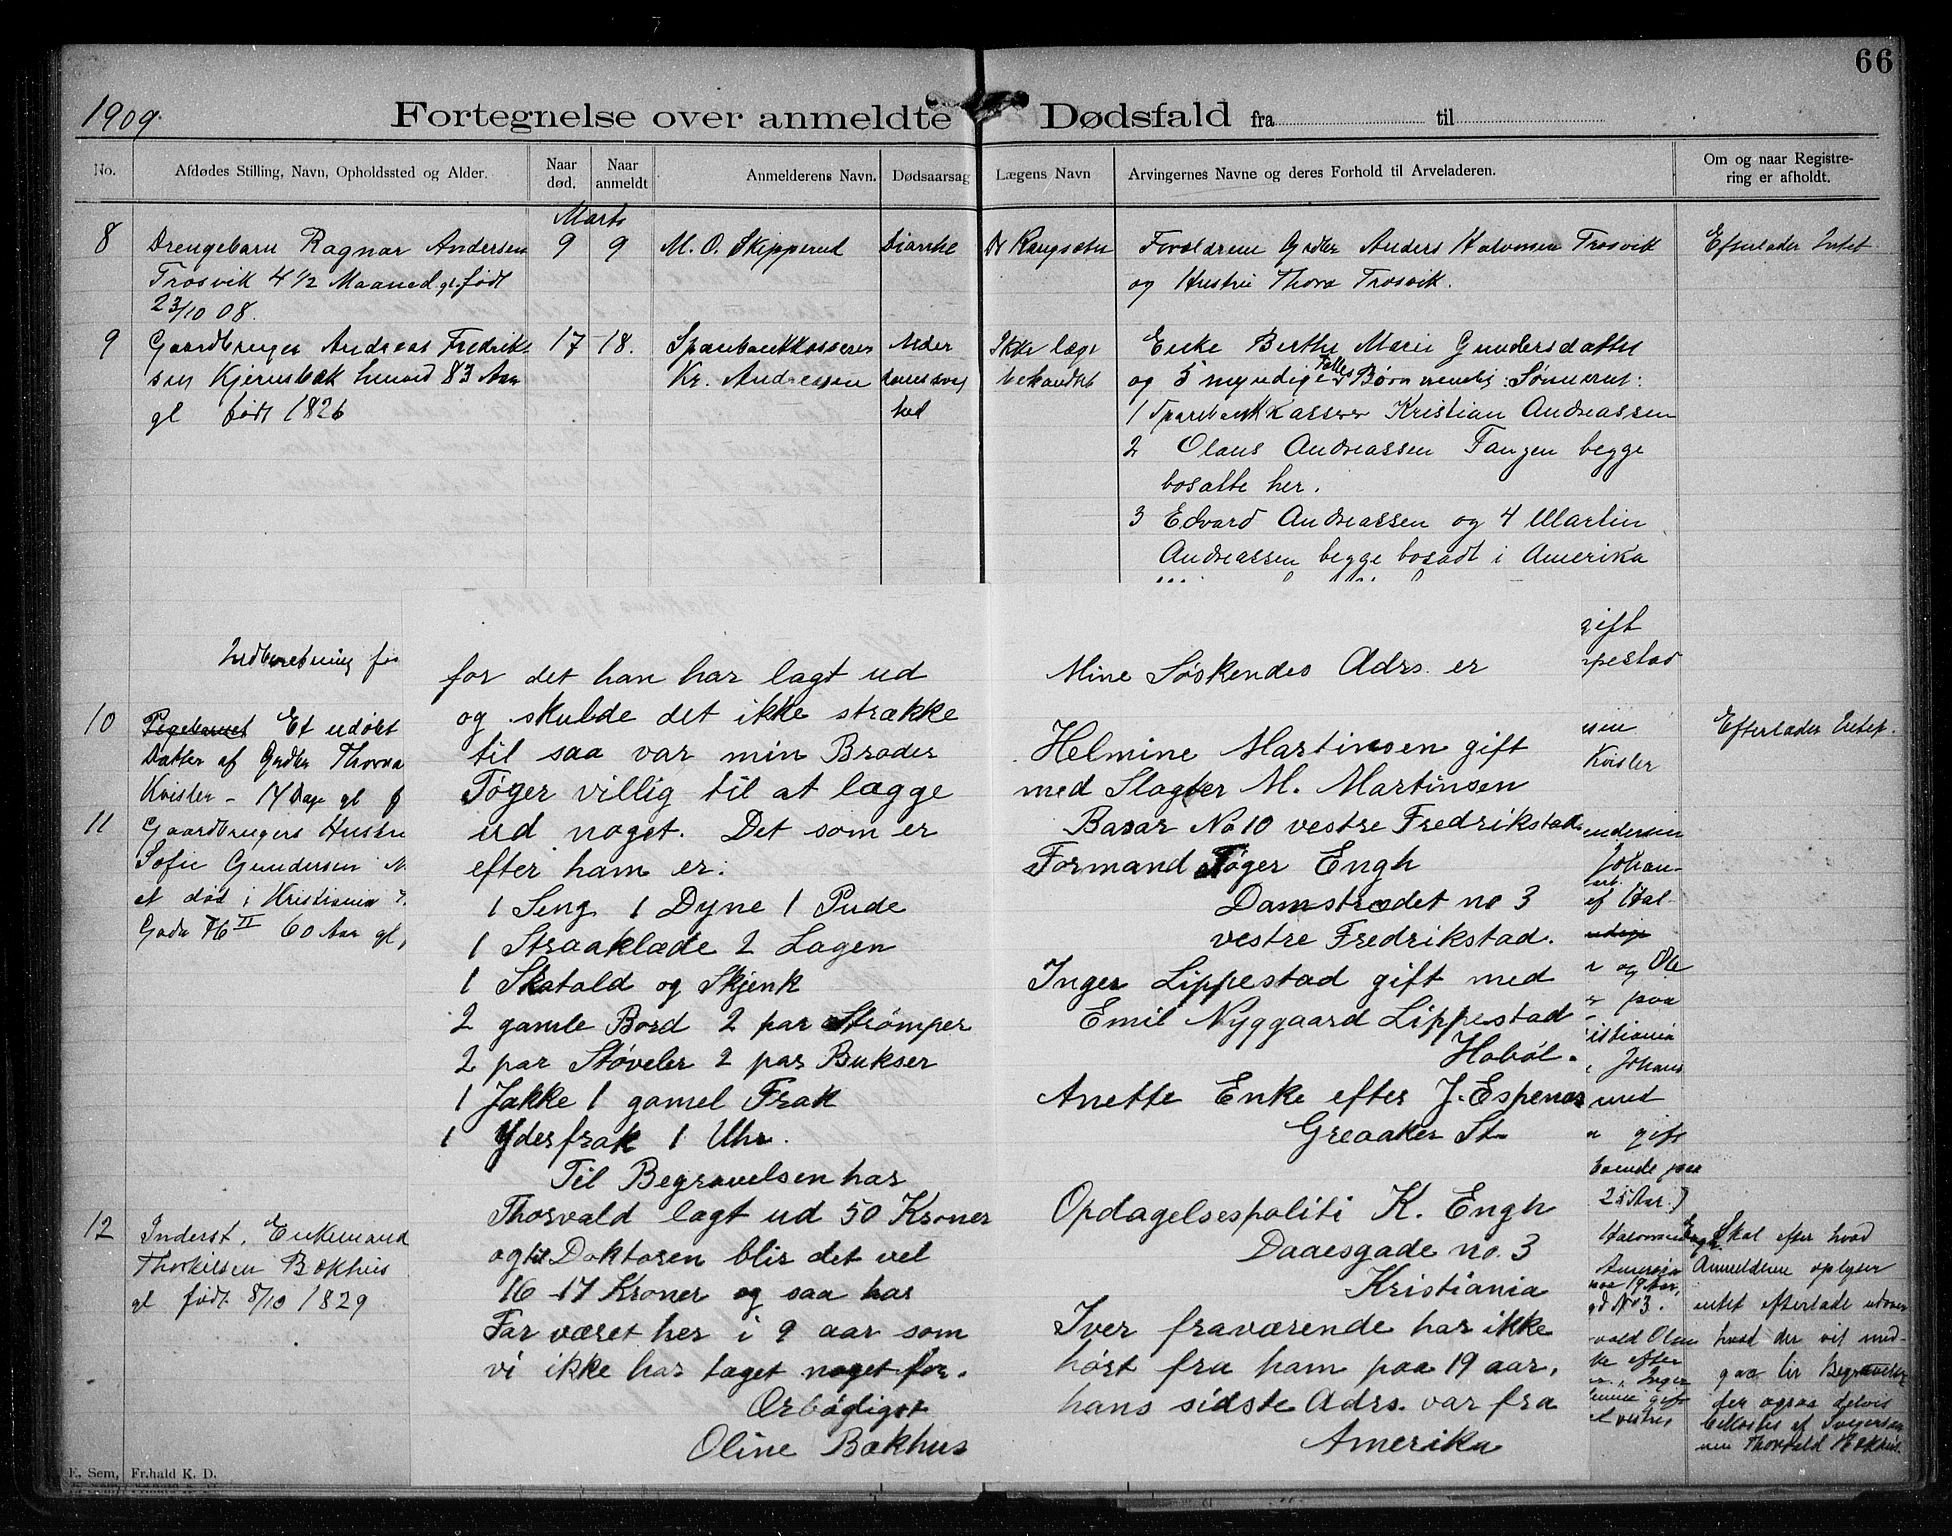 66
1909.
Fortegnelse over anmeldte Dødsfald fra til
No.
Afdødes Stilling, Navn, Opholdssted og Alder.
Naar død.
Naar anmeldt
Anmelderens Navn.
Dødsaarsag
Lægens Navn
Arvingernes Navne og deres Forhold til Arveladeren.
Om og naar Registre-
ring er afholdt.
Marts
8 Drengebarn Ragnar Andersen 9 9 M. O. Skipperud Diarrhe Dr
Trosvik 4 1/2 Maaned gl. født
23/10 08.
Forældrene Grdbr Anders Halvorsen Trosvik
og Hustru Thora Trosvik.
Efterlader Intet
9 Gaardbruger Andreas Fredrik-
sen Kjernsbæk henved 83 Aar
gl født 1826
17 18. Sparebankkasserer
Kr. Andreassen
Alder
domssvag
hed
Ikke læge
behandlet
Enke Berthe Marie Gundersdatter
og 5 myndige Fælles Børn nemlig: Sønnerne:
1 Sparebankkasserer Kristian Andreassen
2 Olaus Andreassen Tangen begge
bosatte her.
3 Edvard Andreassen og 4 Martin
Andreassen begge bosadt i Amerika
Indberetning
10 Pigebarnet Et udøbt
Datter af Grdbr
Kvisler - 14 Dage gl
11 Gaardbrugers Hustru
Sofie Gundersen
død i Kristiania
Gade 76 II 60 Aar gl,
12 Inderst, Enkemand
Thorkilsen Bækhus
gl født 8/10 1829
E. Sem, Fr.hald K. D.
for det han har lagt ud
og skulde det ikke strække
til saa var min Broder
Tøger villig til at lægge
ud noget. Det som er
efter ham er:
1 Seng 1 Dyne 1 Pude
1 Straaklæde 2 Lagen
1 Skatold og Skjenk
2 gamle Bord 2 par Strømper
2 par Støvler 2 par Bukser
1 Jakke 1 gamel Frak
1 Yderfrak 1 Uhr.
Til Begravelsen har
Thorvald lagt ud 50 Kroner
og til Doktoren blir det vel
16-17 Kroner og saa har
Far været her i 9 aar som
vi ikke har taget noget for.
Ærbødigst
Oline Bækhus
Mine Søskendes Adrs. er
Helmine Martinsen gift
med Slagter M. Martinsen
Basar No 10 vestre Fredrikstad
Formand Tøger Engh
Damstrædet no 3
vestre Fredrikstad.
Inger Lippestad gift med
Emil Nyggaard Lippestad
Hobøl.
Anette Enke efter J. Espenæs
Greaaker St.
Opdagelsespoliti K. Engh
Daaesgade no. 3
Kristiania
Iver fraværende har ikke
hørt fra ham paa 19 aar,
hans sidste Adrs. var fra
Amerika
gift
Kvisler
Johan-
af Hal-
og Ole
paa
Johans
med
gift
boende paa
25 Aar.)
paa 19 Aar,
No 3.
efter
gift
vestre
Efterlader Intet.
Skal efter hvad
Anmelderne oplyser
intet efterlade udover
hvad der vil med-
gaa til Begravelse
der ogsaa delvis
bekostes af Svigersøn
nen Thorvald Bækhus.